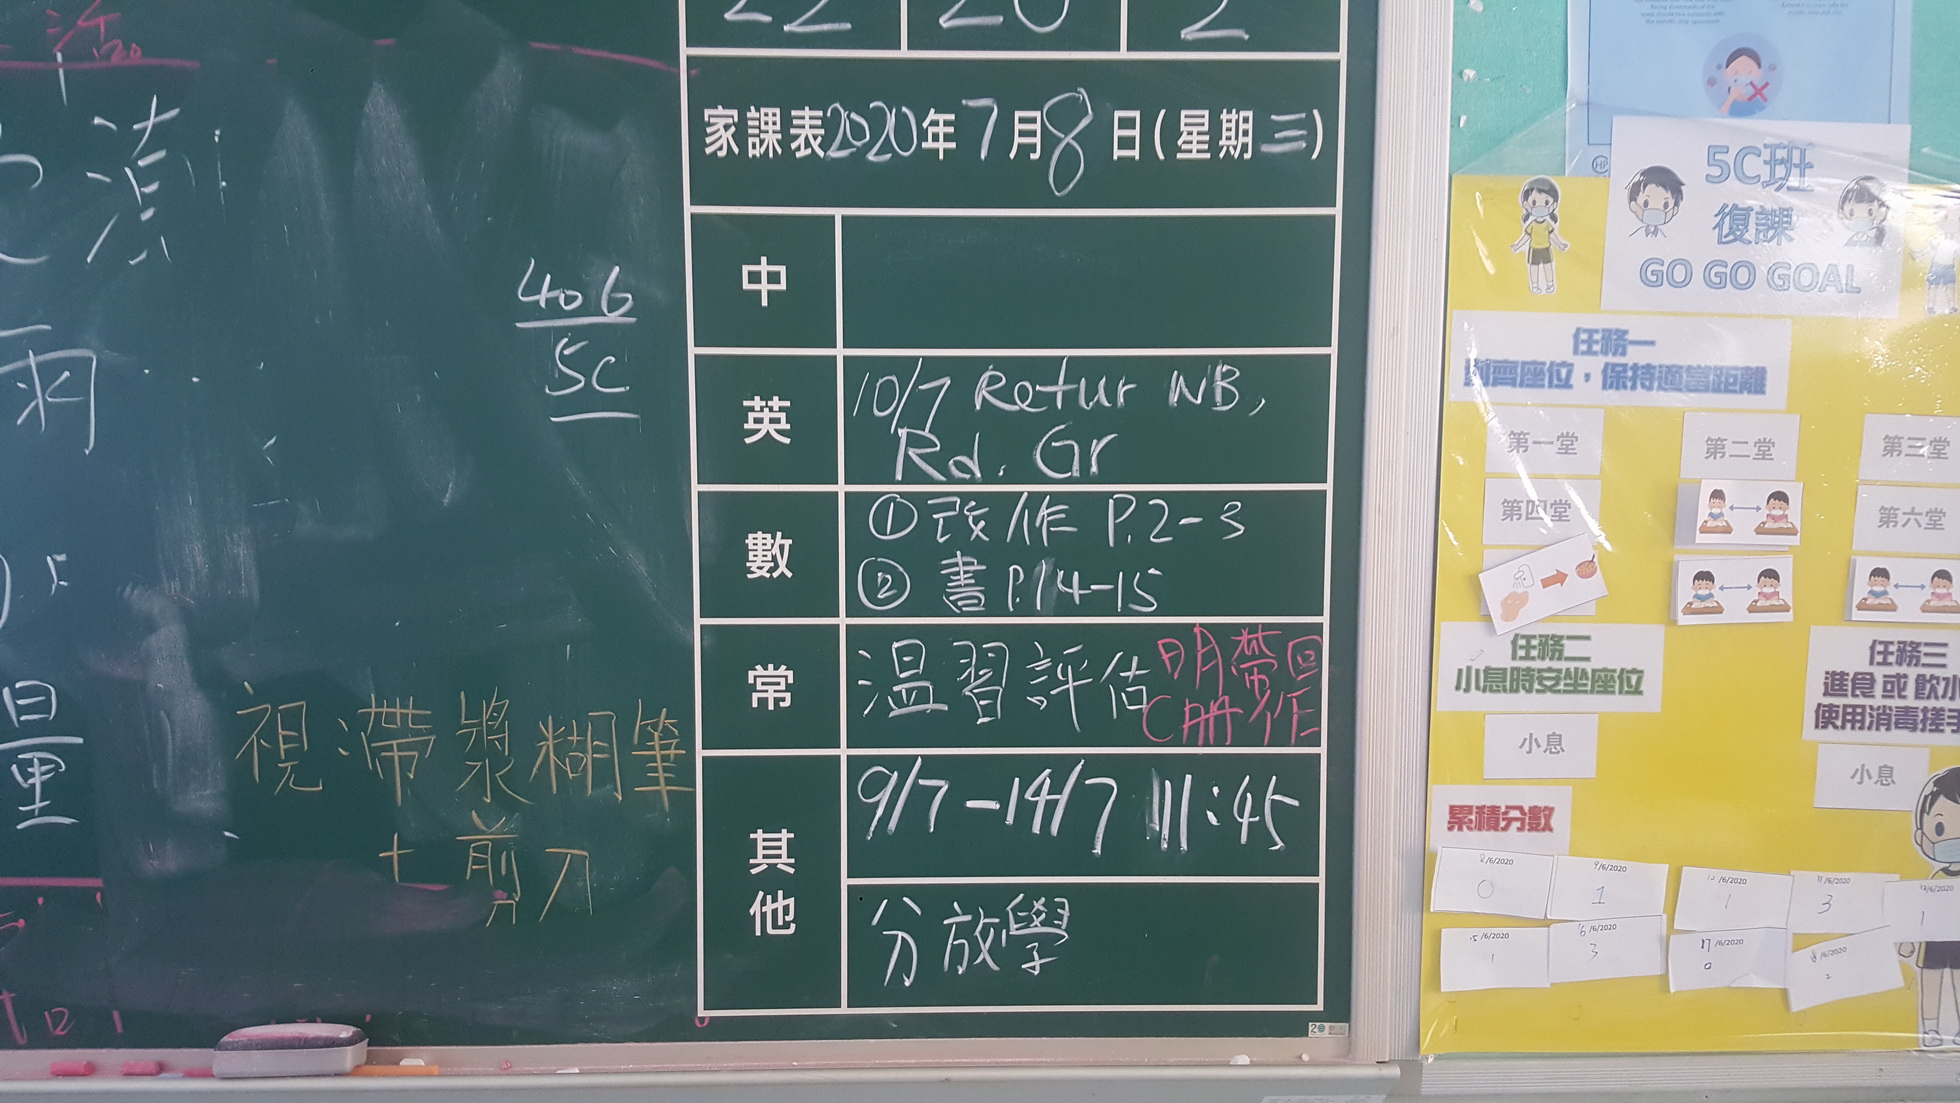 22 20 2
家課表2020年7月8日(星期三)
中
英
10/7 Retur NB,
Rd. Gr
數
① 改作 P.2-3
② 書P.14-15
常
溫習評估
明帶回
其他
9/7-14/7 11:45
分放學
406
5C
視:帶漿糊筆
+剪刀
量
5C班
復課
GO GO GOAL
任務一
對齊座位，保持適當距離
第一堂
第二堂
第三堂
第四堂
第六堂
任務二
小息時安坐座位
小息
任務三
進食或飲水
使用消毒搓手
小息
累積分數
2/6/2020
0
9/6/2020
1
/6/2020
1
11/6/2020
3
12/6/2020
1
15/6/2020
1
16/6/2020
3
17/6/2020
0
/6/2020
2